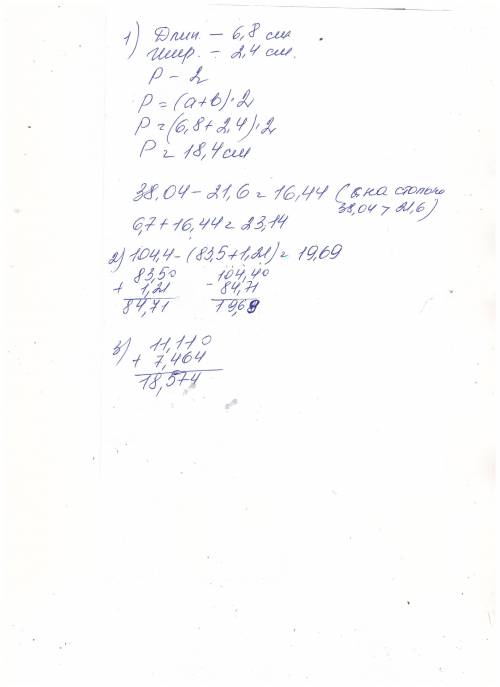 1) Длин. – 6,8 см
Шир. – 2,4 см.
P – 2
P = (a+b)·2
P = (6,8+2,4)·2
P = 18,4 см
38,04 – 21,6 = 16,44 (на столько
38,04 > 21,6)
6,7 + 16,44 = 23,14
2) 104,4 – (83,5 + 1,21) = 19,69
83,50 104,40
+ 1,21 – 84,71
84,71 19,69
3) 11,110
+ 7,464
18,574